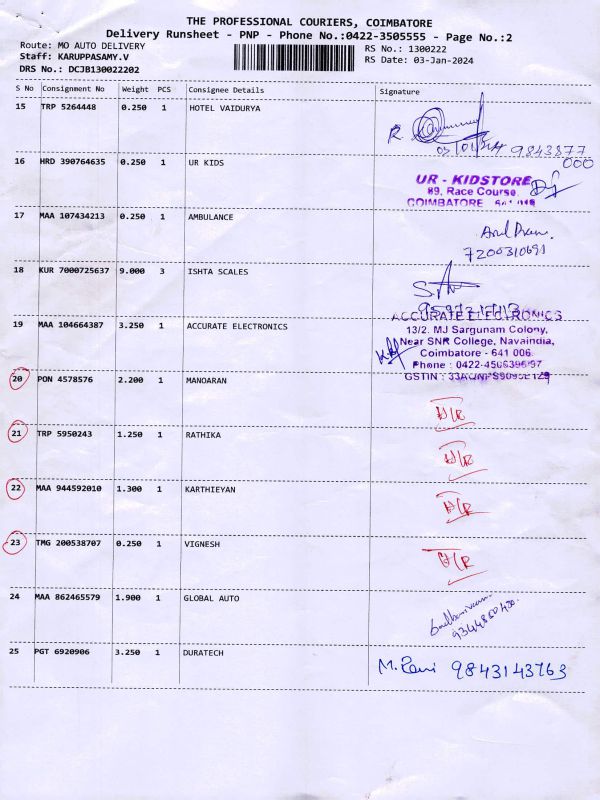 THE PROFESSIONAL COURIERS, COIMBATORE
Delivery Runsheet - PNP - Phone No.:0422-3505555 - Page No.:2
Route: MO AUTO DELIVERY RS No.: 1300222
Staff: KARUPPASAMY.V RS Date: 03-Jan-2024
DRS No.: DCJB130022202
S No Consignment No Weight PCS Consignee Details Signature
15 TRP 5264448 0.250 1 HOTEL VAIDURYA
R.
03/01/24 9843877
000
16 HRD 390764635 0.250 1 UR KIDS
UR - KIDSTORE
89, Race Course
COIMBATORE
17 MAA 107434213 0.250 1 AMBULANCE
7200310691
18 KUR 7000725637 9.000 3 ISHTA SCALES
19 MAA 104664387 3.250 1 ACCURATE ELECTRONICS
ACCURATE ELECTRONICS
13/2. MJ Sargunam Colony,
Near SNR College, Navaindia,
Coimbatore - 641 006.
Phone : 0422-4506396/97
GSTIN :
20 PON 4578576 2.200 1 MANOARAN
D/R
21 TRP 5950243 1.250 1 RATHIKA
D/R
22 MAA 944592010 1.300 1 KARTHIEYAN
D/R
23 TMG 200538707 0.250 1 VIGNESH
D/R
24 MAA 862465579 1.900 1 GLOBAL AUTO
25 PGT 6920906 3.250 1 DURATECH
M. Ravi 9843143763